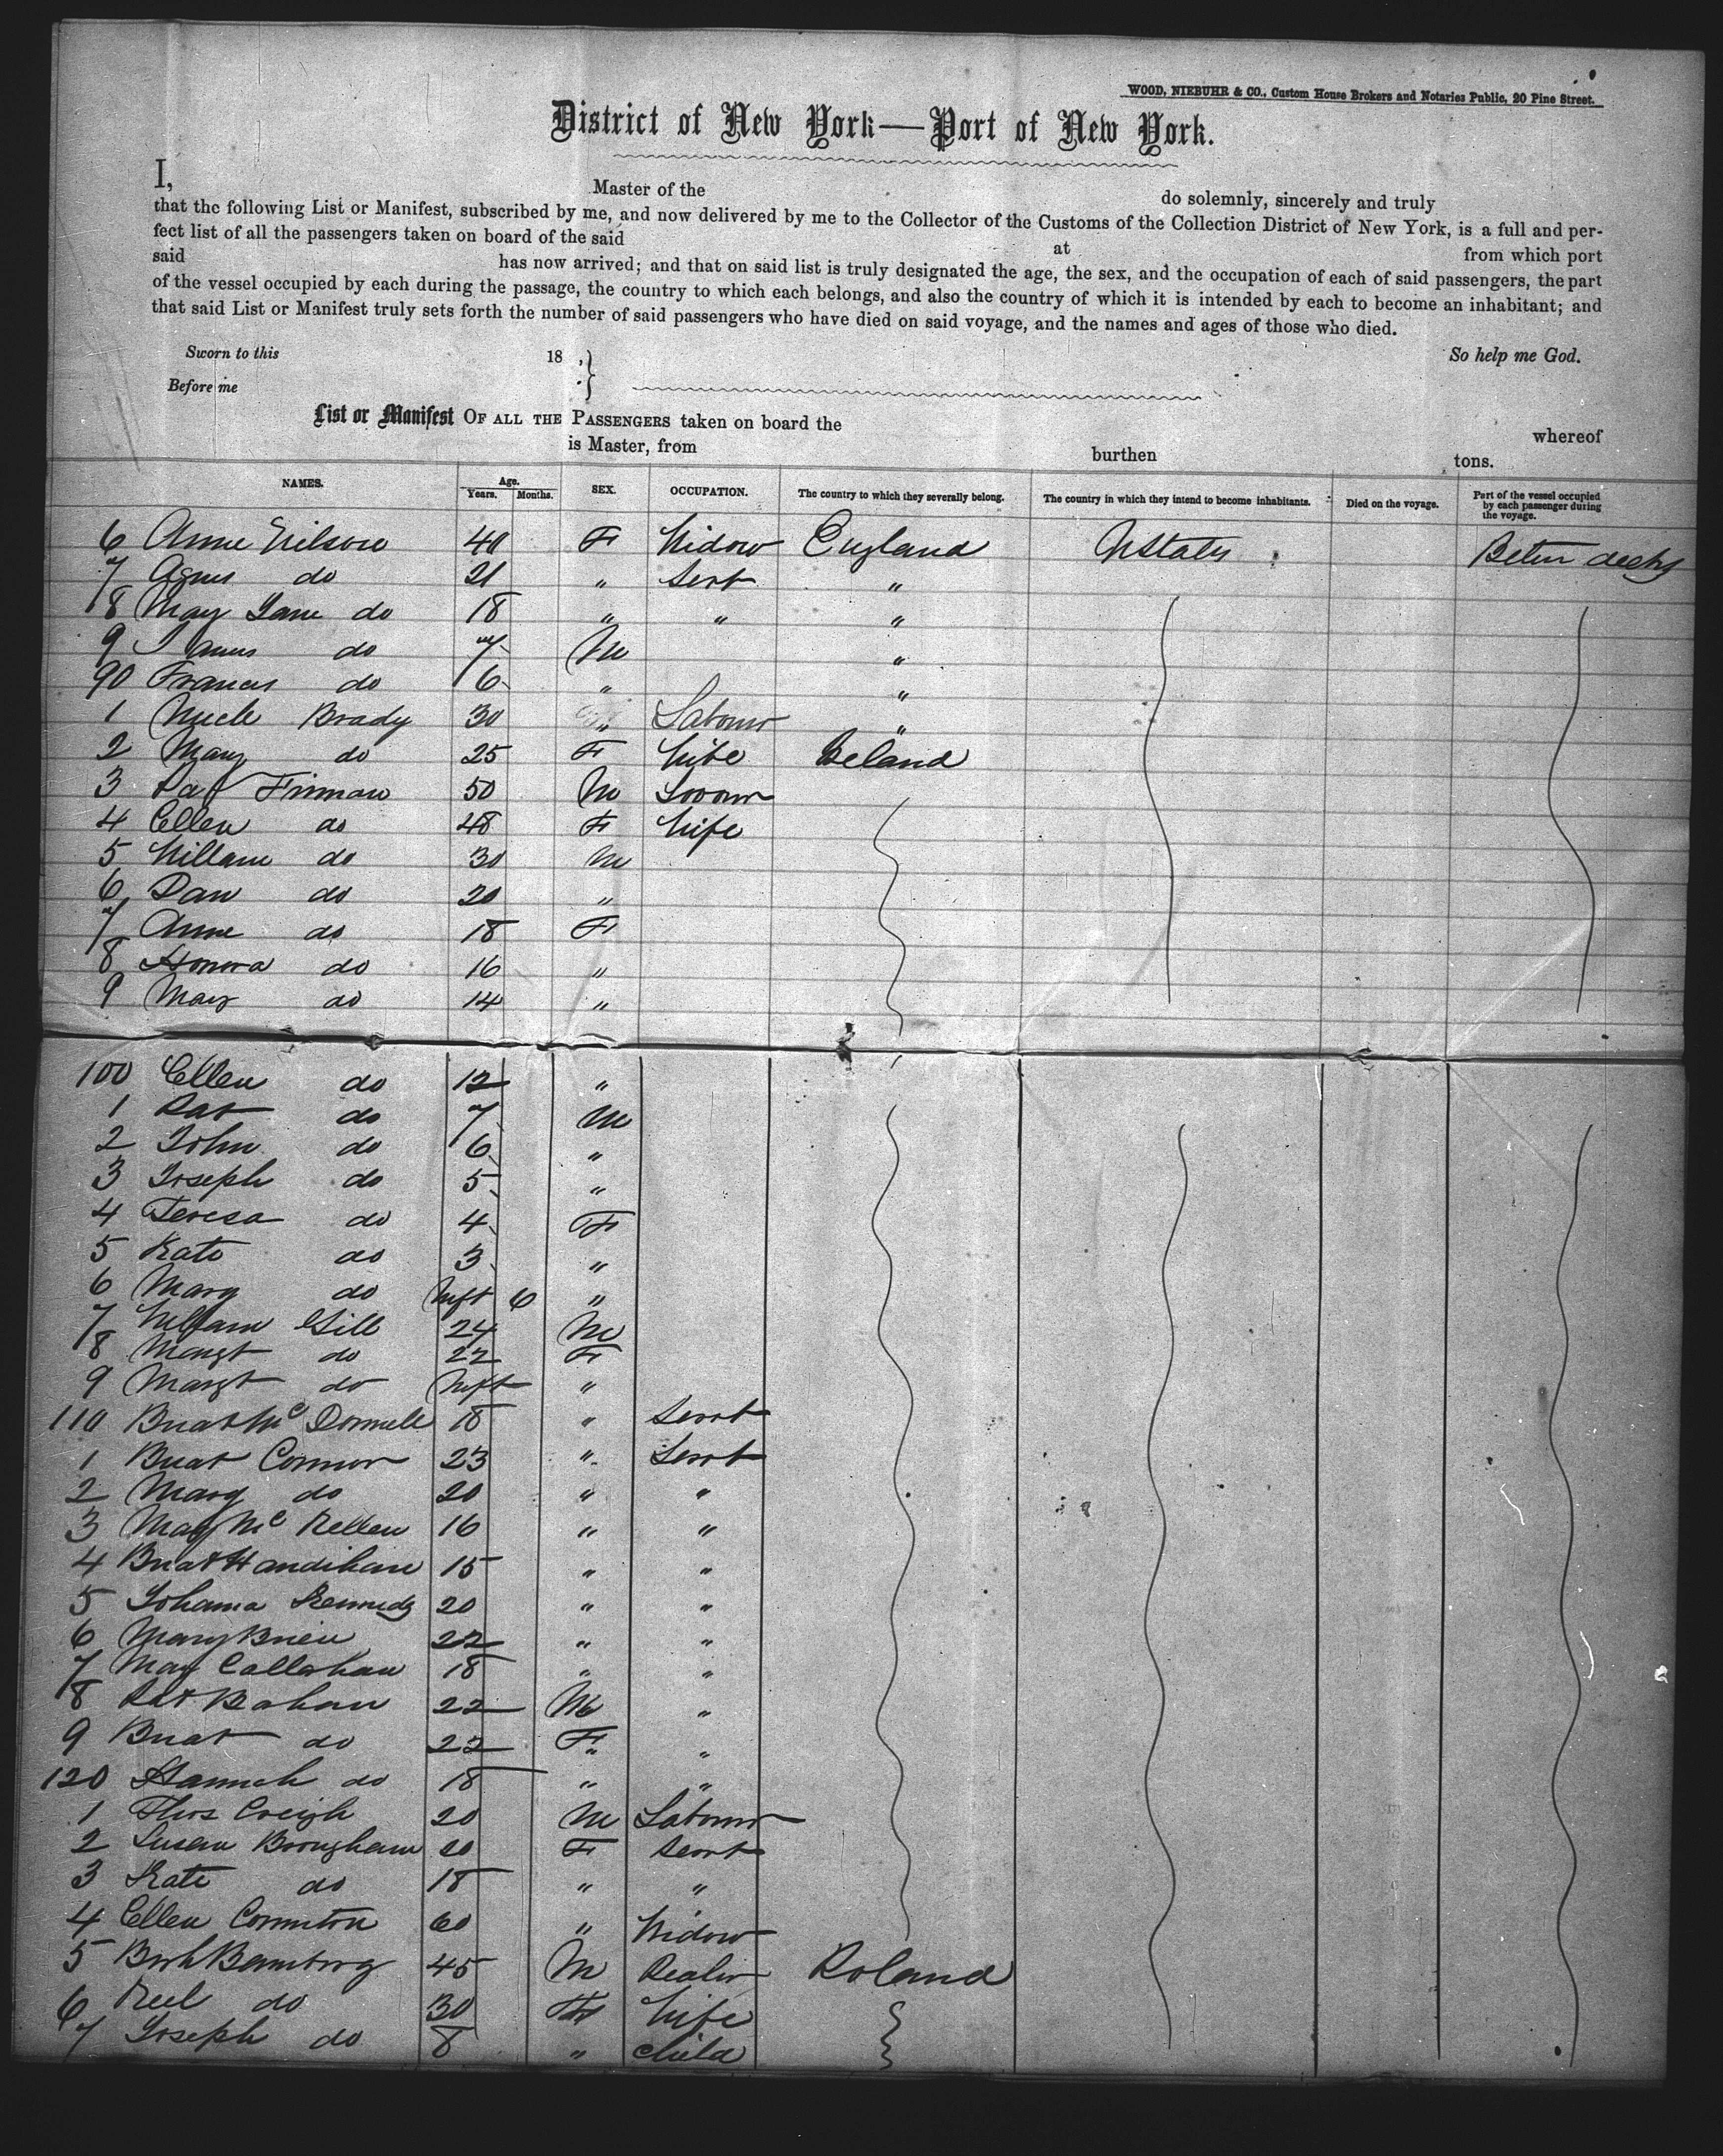 WOOD, NIEBUHR & CO., Custom House Brokers and Notaries Public, 20 Pine Street.
District of New York—Port of New York.
I, Master of the do solemnly, sincerely and truly
that the following List or Manifest, subscribed by me, and now delivered by me to the Collector of the Customs of the Collection District of New York, is a full and per-
fect list of all the passengers taken on board of the said at from which port
said has now arrived; and that on said list is truly designated the age, the sex, and the occupation of each of said passengers, the part
of the vessel occupied by each during the passage, the country to which each belongs, and also the country of which it is intended by each to become an inhabitant; and
that said List or Manifest truly sets forth the number of said passengers who have died on said voyage, and the names and ages of those who died.
Sworn to this 18 , So help me God.
Before me
List or Manifest OF ALL THE PASSENGERS taken on board the whereof
is Master, from burthen tons.
NAMES. Age. Years. Months. SEX. OCCUPATION. The country to which they severally belong. The country in which they intend to become inhabitants. Died on the voyage. Part of the vessel occupied by each passenger during the voyage.
6 Anne Nilson 40 F Widow England UStates Betwn decks
7 Agnes do 21 " Servt "
8 Mary Jane do 18 " " "
9 James do 7 M "
90 Francis do 6 " "
1 Brady 30 " Labourer "
2 Mary do 25 F Wife Ireland
3 Pat Finman 50 M
4 Ellen do 48 F Wife
5 William do 30 M
6 Dan do 20 "
7 Anne do 18 F
8 Honora do 16 "
9 Mary do 14 "
100 Ellen do 12 "
1 Pat do 7 M
2 John do 6 "
3 Joseph do 5 "
4 Teresa do 4 F
5 Kate do 3 "
6 Mary do Inft 6 "
7 William Gill 24 M
8 Margt do 22 F
9 Margt do Inft "
110 Bridt McDonnell 18 " Servt
1 Bridt Connor 23 " Servt
2 Mary do 20 " "
3 Mary McKellen 16 " "
4 Bridt Handihan 15 " "
5 Johanna Kennedy 20 " "
6 Mary Brien 22 " "
7 Mary Callahan 18 " "
8 Pat Bahan 22 M "
9 Bridt do 22 F "
120 Hannah do 18 " "
1 Thos Creigh 20 M Labourer
2 Susan Brougham 20 F Servt
3 Kate do 18 " "
4 Ellen 60 " Widow
5 45 M Dealer Poland
6 do 30 F Wife
7 Joseph do 8 " Child